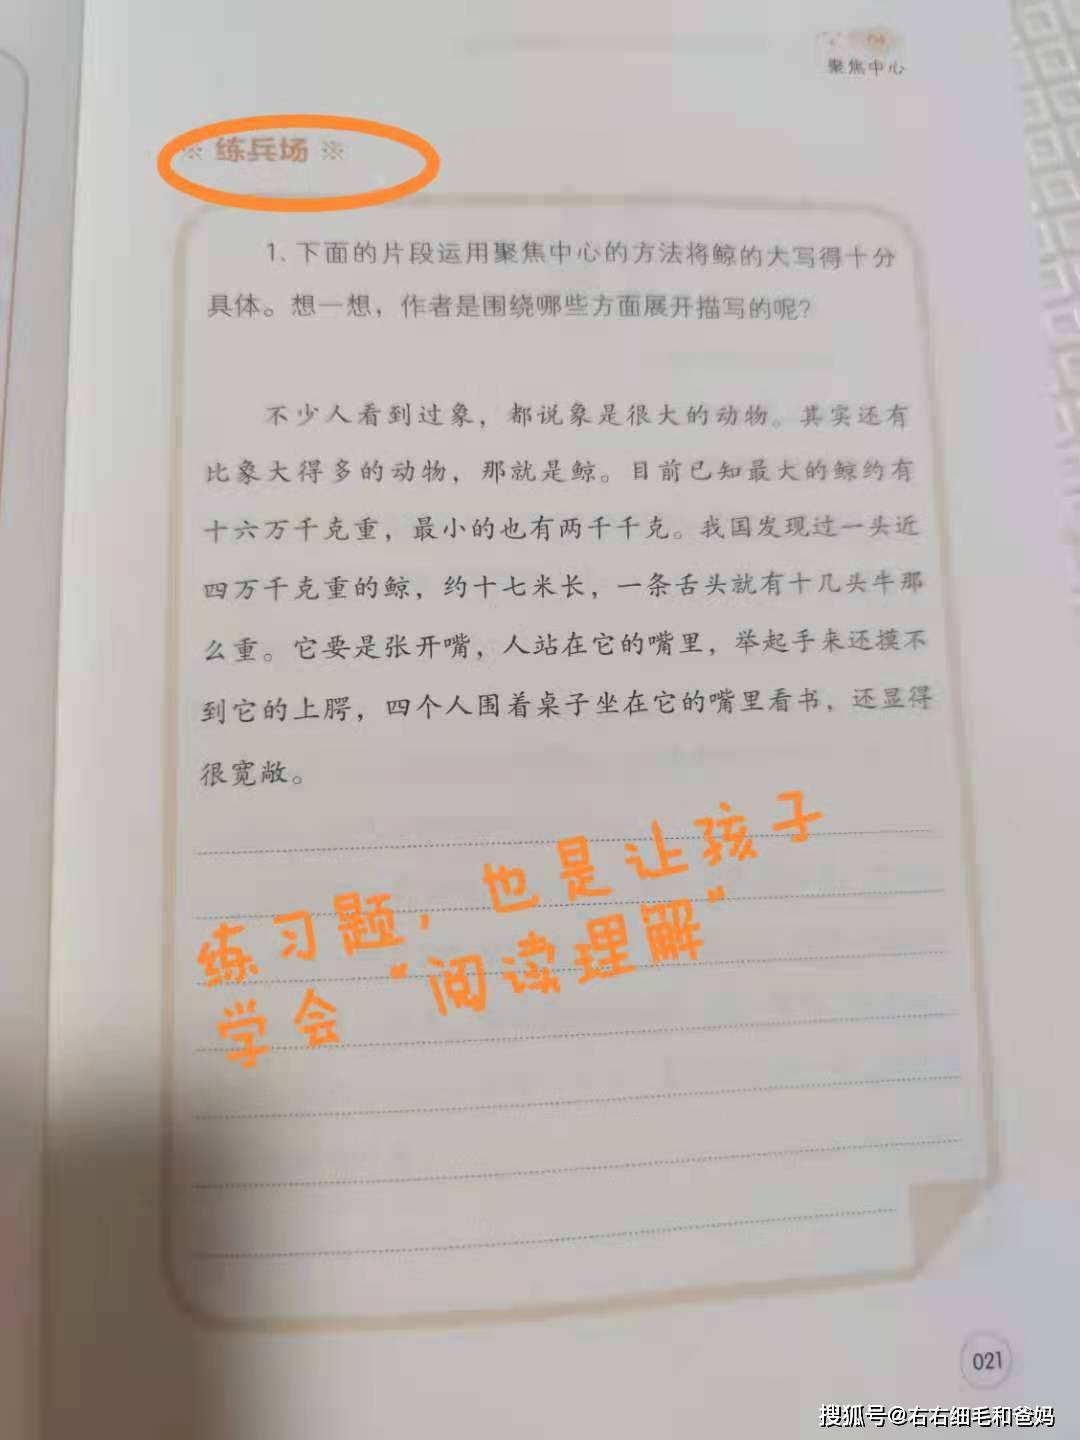 聚焦中心
※ 练兵场 ※
1. 下面的片段运用聚焦中心的方法将鲸的大写得十分
具体。想一想，作者是围绕哪些方面展开描写的呢？
不少人看到过象，都说象是很大的动物。其实还有
比象大得多的动物，那就是鲸。目前已知最大的鲸约有
十六万千克重，最小的也有两千千克。我国发现过一头近
四万千克重的鲸，约十七米长，一条舌头就有十几头牛那
么重。它要是张开嘴，人站在它的嘴里，举起手来还摸不
到它的上腭，四个人围着桌子坐在它的嘴里看书，还显得
很宽敞。
练习题，也是让孩子
学会“阅读理解”
021
搜狐号@右右细毛和爸妈